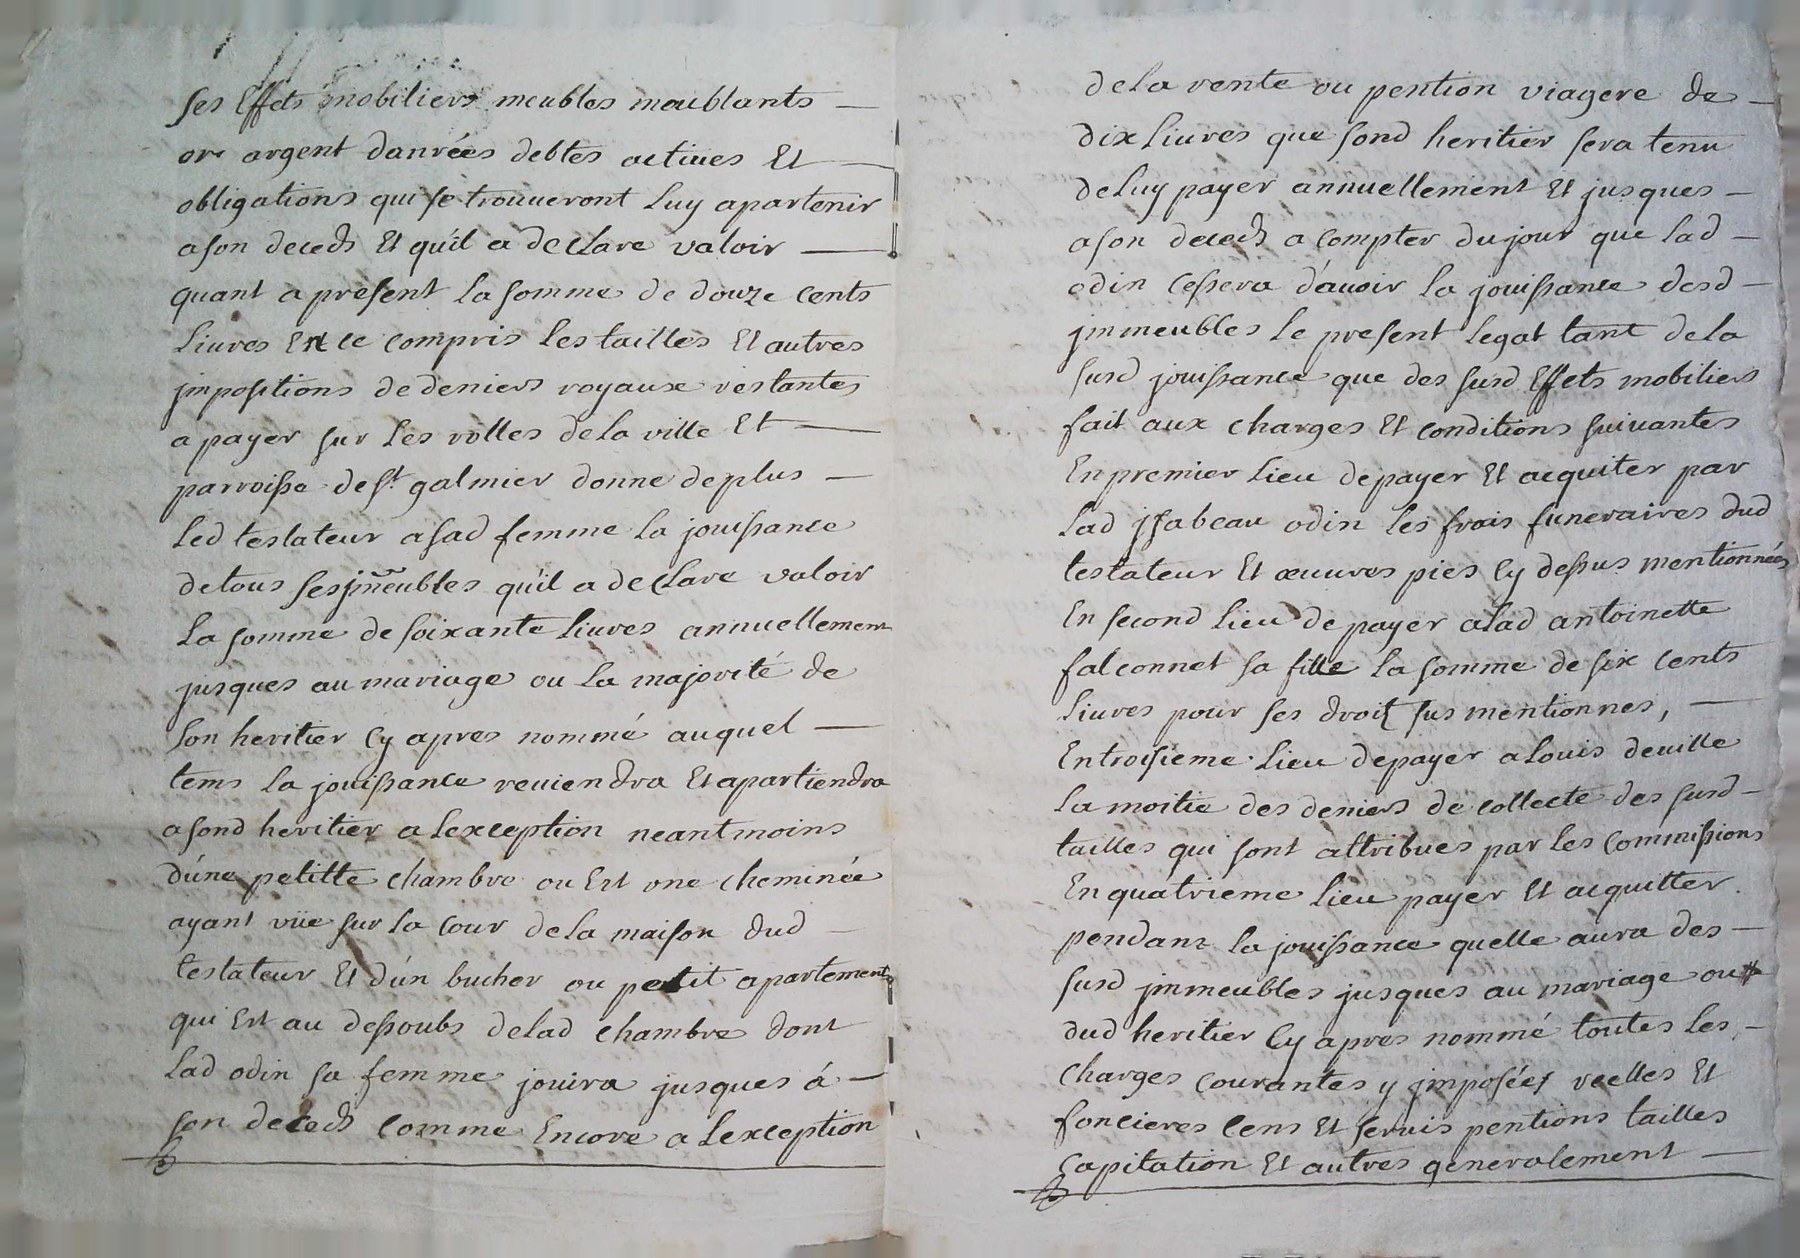 ses Effets mobiliers meubles meublants —
or argent danrées debtes actives Et —
obligations qui se trouueront luy apartenir
a son decedz Et qu'il a declare valoir —
quant a present la somme de douze cents
liures En ce compris les tailles Et autres
jmpositions de deniers royaux restantes
a payer sur les rolles de la ville Et —
parroisse de St galmier donne de plus —
led testateur a sad femme la jouissance
de tous ses jmeubles qu'il a declare valoir
la somme de soixante liures annuellement
jusques au mariage ou la majorité de
son heritier Cy apres nommé auquel —
tems la jouissance reuiendra Et apartiendra
a sond heritier a lexception neantmoins
d'une petitte chambre ou Est une cheminée
ayant vüe sur la Cour de la maison dud —
testateur Et d'un bucher ou petit apartement
qui Est au dessoubs de lad chambre dont
lad odin sa femme jouira jusques á —
son decedz Comme Encore a Lexception
de la rente ou pention viagere de —
dix liures que sond heritier sera tenu
de luy payer annuellement Et jusques —
a son decedz a Compter du jour que lad —
odin cessera d'auoir la jouissance desd —
jmmeubles le present legat tant de la
susd jouissance que des susd Effets mobiliers
fait aux charges Et conditions suiuantes
En premier lieu de payer Et acquiter par
lad jsabeau odin les frais funeraires dud
testateur Et œuures pies Cy dessus mentionnées
En second lieu de payer a lad antoinette
falconnet sa fille la somme de six cents
liures pour ses droitz sus mentionnes, —
En troisieme lieu de payer a louis deuille
la moitie des deniers de collecte des susd —
tailles qui sont attribues par les Commissions
En quatrieme lieu payer Et acquitter
pendant la jouissance quelle aura des —
susd jmmeubles jusques au mariage ou
dud heritier Cy apres nommé toutes les —
charges courantes y jmposées reelles Et
foncieres Cens Et seruis pentions tailles
Capitation Et autres generalement —